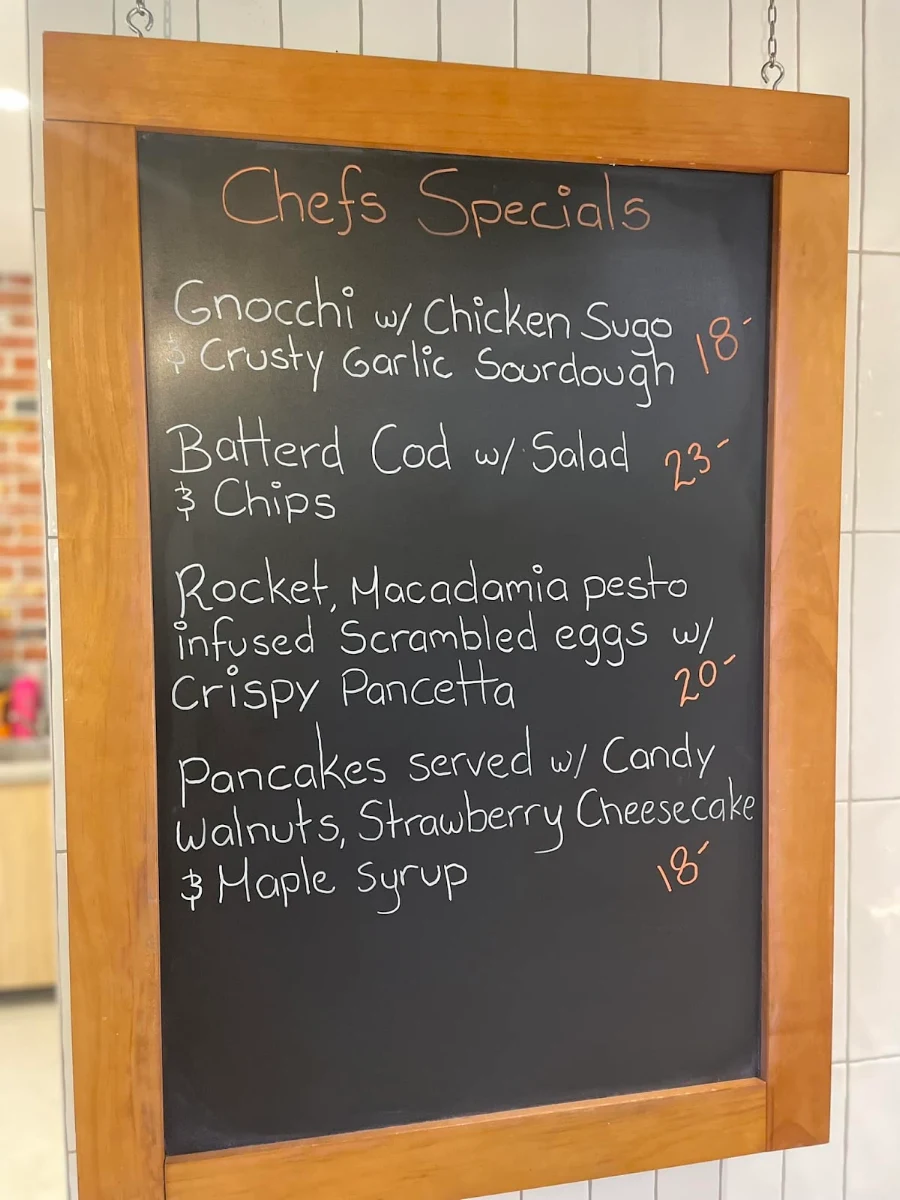 Chefs Specials
Gnocchi w/ Chicken Sugo
& Crusty Garlic Sourdough 18-
Batterd Cod w/ Salad 23-
& Chips
Rocket, Macadamia pesto
infused Scrambled eggs w/
Crispy Pancetta 20-
Pancakes served w/ Candy
Walnuts, Strawberry Cheesecake
& Maple Syrup 18-